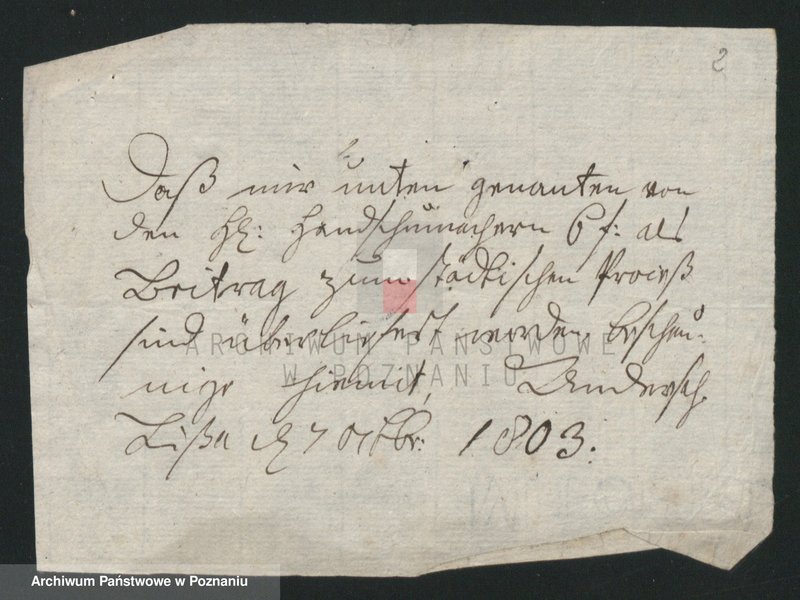 2
Daß mir unten genanten von
den HH: Handschumachern 6 f: als
Beitrag zum städtischen Proceß
sind überliefert worden, beschei-
nige hiemit, Andersch.
Lißa d 7 Octbr: 1803.
ARCHIWUM PAŃSTWOWE
W POZNANIU
Archiwum Państwowe w Poznaniu